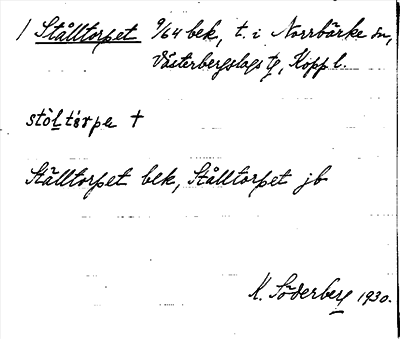 1 Ståltorpet 9/64 bek, t. i Norrbärke sn,
Västerbergslags tg, Kopp l.
stöltårpe †
Ställtorpet bek, Ståltorpet jb
K. Söderberg 1930.